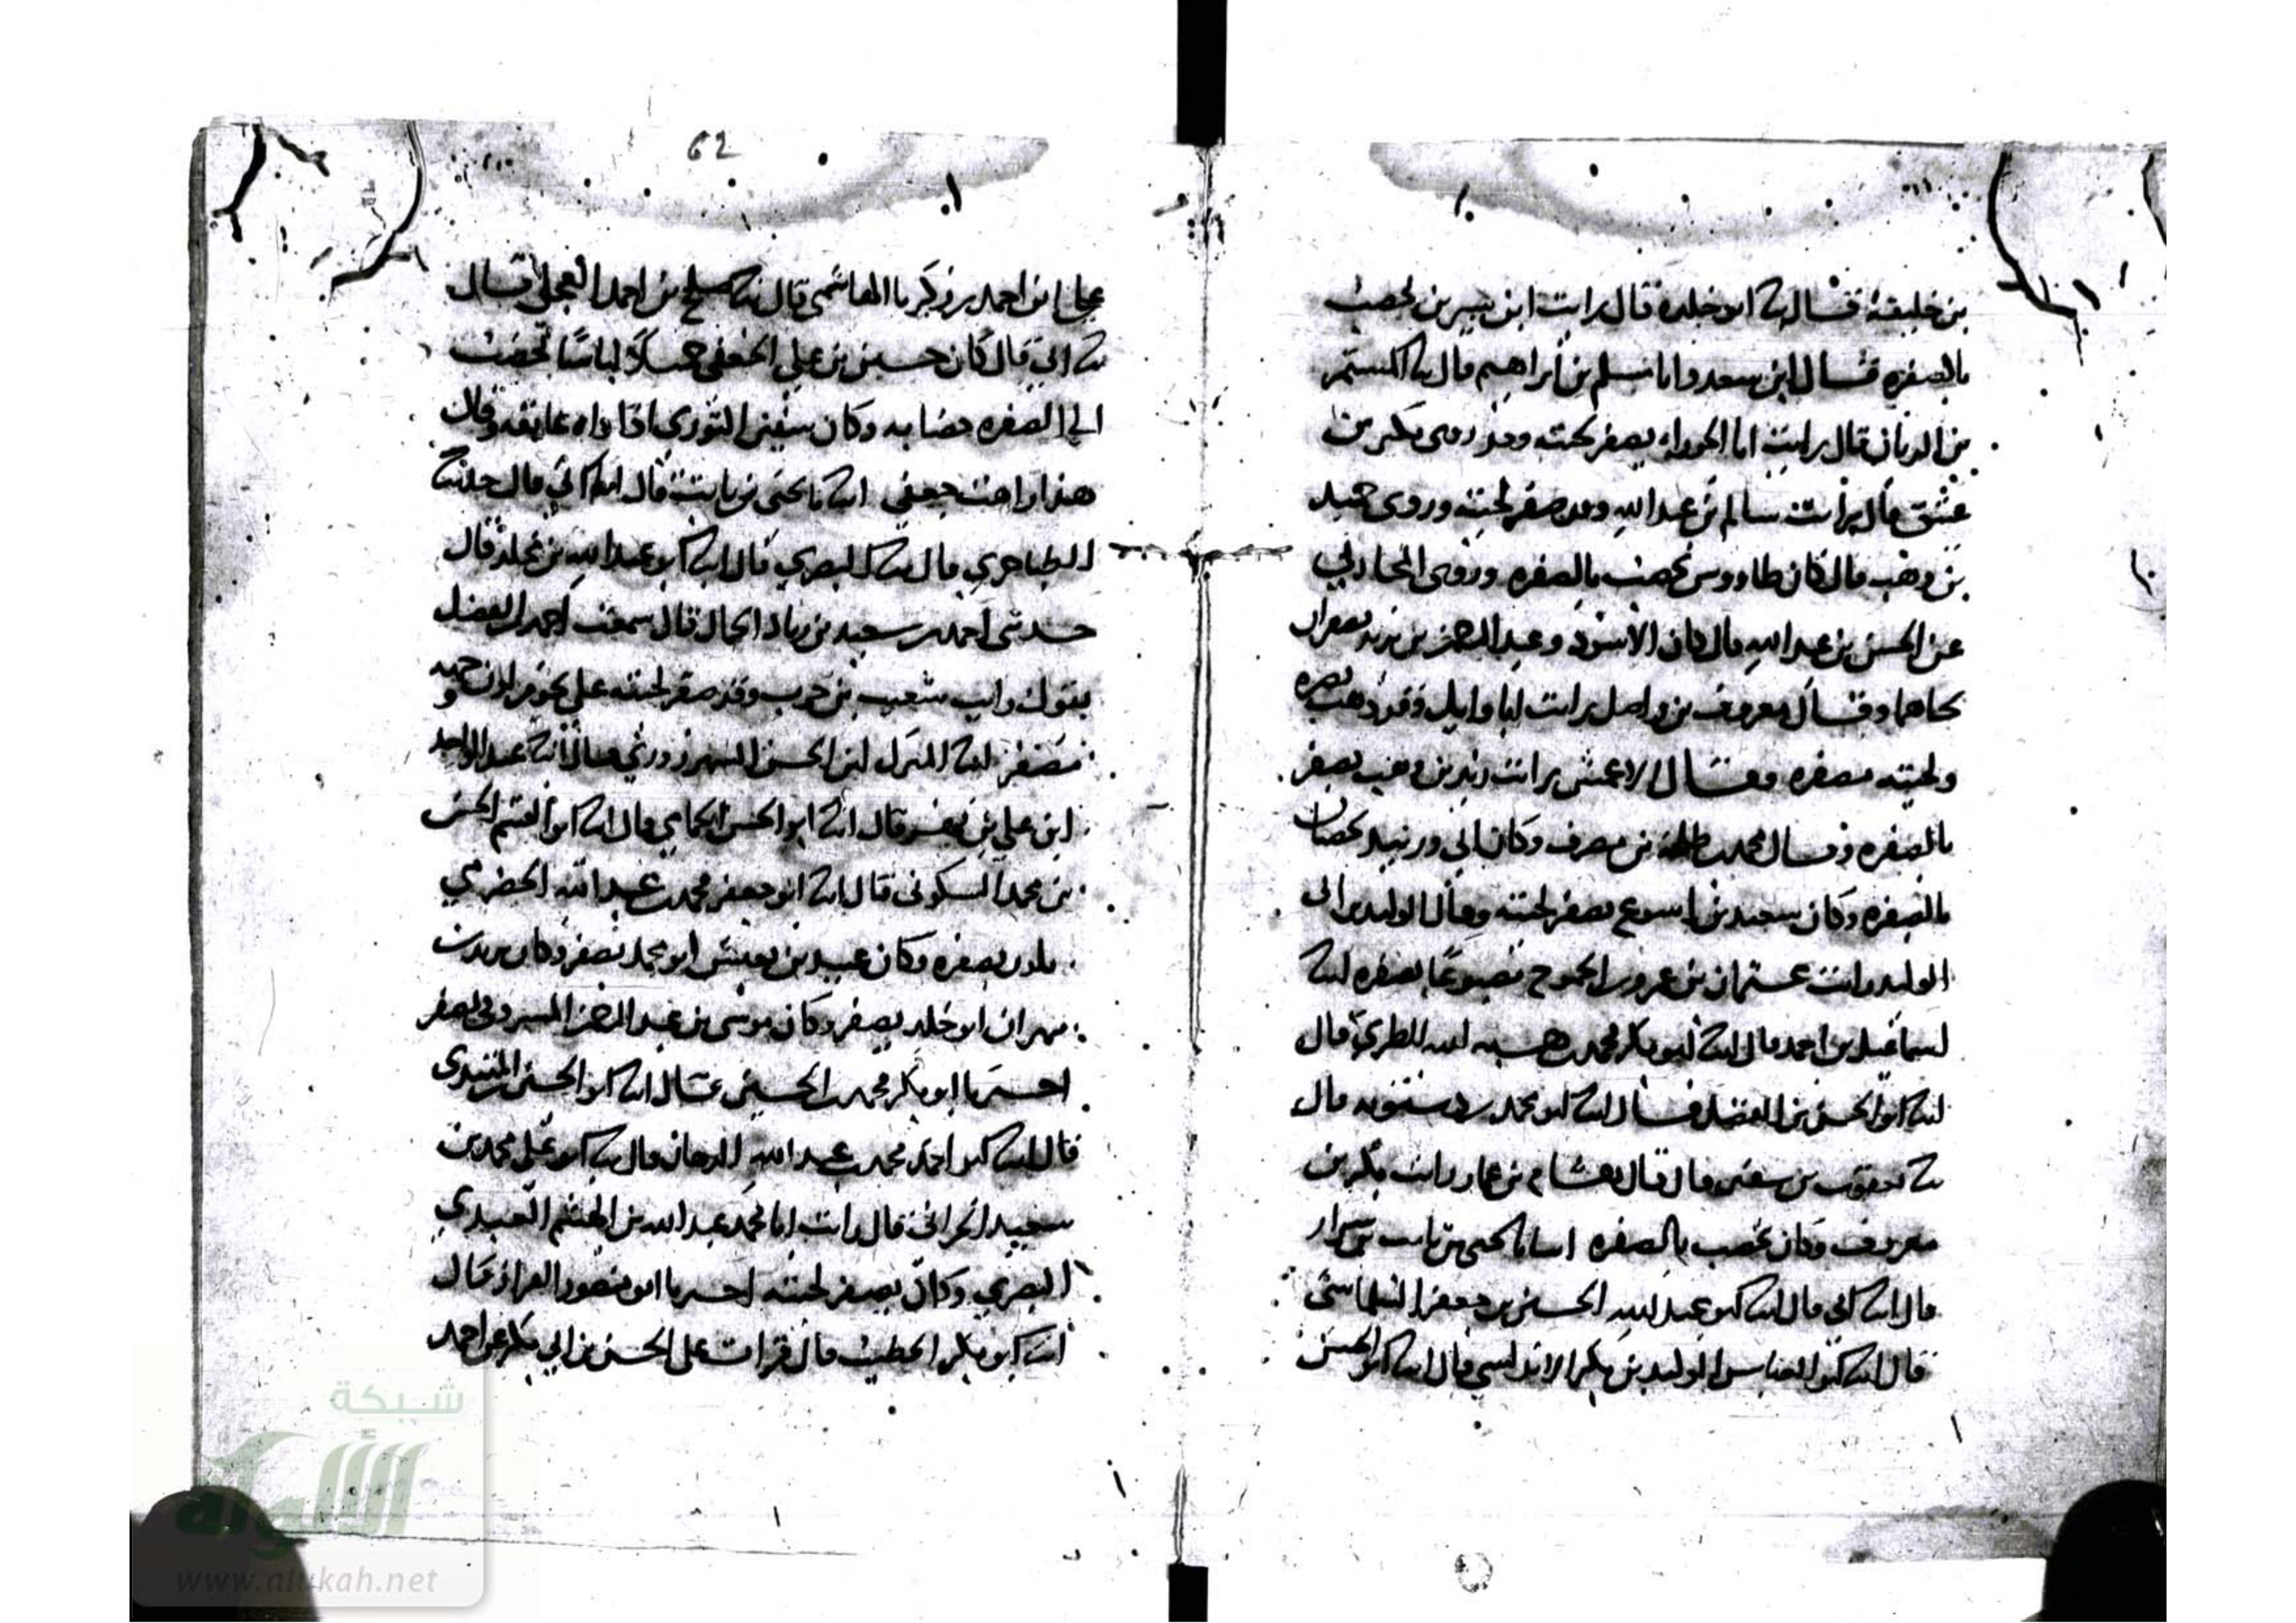 بن خليفة قال ثنا ابو خلدة قال رايت ابن سيرين يخضب
بالصفرة قال ابن سعد وانا مسلم بن ابراهيم قال ثنا المستمر
بن الريان قال رايت ابا الجوزاء يصفر لحيته وقد روى بكير بن
عتيق قال رايت سالم بن عبد الله وقد صفر لحيته وروى حميد
بن وهب قال كان طاووس يخضب بالصفرة وروى المحاربي
عن الحسن بن عبيد الله قال كان الاسود وعبد الرحمن بن يزيد يصفران
لحاهما وقال معروف بن واصل رايت ابا وايل وقد ذهب بصره
ولحيته مصفرة وقال الاعمش رايت زيد بن وهب يصفر
بالصفرة وقال محمد بن طلحة بن مصرف وكان ابي وزبيد يخضبان
بالصفرة وكان سعيد بن اشوع يصفر لحيته وقال الوليد بن ابي
الوليد رايت عثمان بن عمرو بن الجموح مصبوغا بصفرة انبا
اسماعيل بن احمد قال انبا ابو بكر محمد بن هبة الله الطبري قال
انبا ابو الحسين بن الفضل قال انبا ابو محمد بن درستويه قال
ثنا يعقوب بن سفين قال قال هشام بن عمار رايت بكير بن
معروف وكان يخضب بالصفرة انبانا يحيى بن ثابت بن بندار
قال انبا ابي قال انبا ابو عبد الله الحسين بن جعفر السلماسي
قال انبا ابو العباس الوليد بن بكر الاندلسي قال انبا ابو الحسن
62
علي ابن احمد بن زكريا الهاشمي قال ثنا صلح بن احمد العجلي قال
ثنا ابي قال كان حسين بن علي الجعفي جميلا لباسا يخضب
الى الصفرة خضابه وكان سفين الثوري اذا راه عانقه وقال
هذا راهب جعفي انبا يحيى بن ثابت قال انبا ابي قال حدثنا
الطناجري قال
حدثني احمد بن سعيد بن زياد الجمال قال سمعت احمد بن الفضل
يقول رايت شعيب بن حرب وقد صفر لحيته على نحو من اذن
مصفر انبا المبرك ابن الحسن الشهرزوري قال انبا عبد الواحد
ابن علي بن فهد قال انبا ابو الحسن الحمامي قال انبا ابو القسم الحسن
بن محمد السكوني قال انبا ابو جعفر محمد بن عبد الله الحضرمي
بصفرة وكان عبيد بن يعيش ابو محمد يصفر وكان يزيد بن
مهران ابو خلد يصفر وكان موسى بن عبد الرحمن المسروقي يصفر
اخبرنا ابو بكر محمد بن الحسين قال انبا ابو الحسين المهتدي
قال انبا ابو احمد محمد بن عبد الله الدهان قال ثنا ابو علي محمد بن
سعيد الحراني قال رايت ابا محمد عبد الله بن الهيثم العبدي
البصري وكان يصفر لحيته اخبرنا ابو منصور القزاز قال
انبا ابو بكر الخطيب قال قرات على الحسن بن ابي بكر عن احمد
شبكة
الألوكة
www.alukah.net